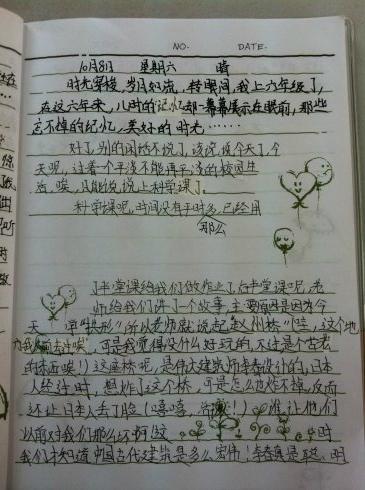 NO.    DATE.
10月8日 星期六 晴
时光穿梭，岁月如流，转眼间，我上六年级了，
在这六年来，儿时的记忆却一幕幕展示在眼前，那些
忘不掉的记忆，美好的时光……
好了，别的闲话不说了，该说说今天了，今
天呢，过着一平淡不能再平淡的校园生
活，唉，只能说说上科学课了。
科学课呢，时间没有平时多，已经用
那么
了半堂课给我们做作业了，后半堂课呢，老
师给我们讲了一个故事，主要原因是因为今
天 学"拱形"所以老师就说起"赵州桥"哇，这个地
可是我觉得没什么好玩的，不过是个古老
的东西唉！）这座桥呢，是伟大建筑师李春设计的，日本
人经过时，想炸了这个桥，可是怎么也炸不掉，反而
还让日本人丢了脸（嘻嘻，！）谁让他们
以前对我们那么坏啊 时
我们才知道中国古代建筑是多么宏伟！李春真是聪明